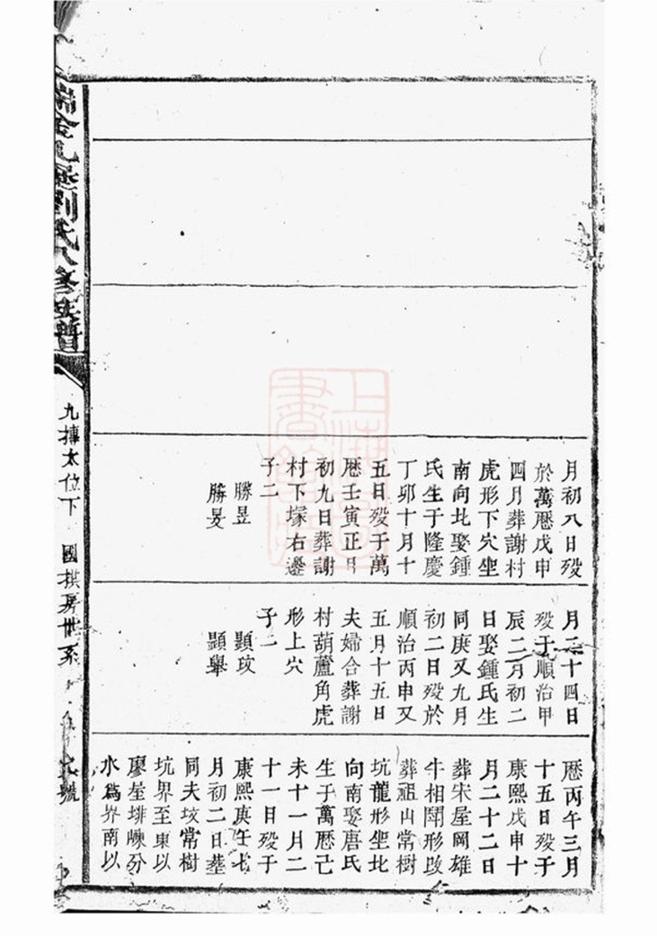 月初八日殁
於萬歷戊申
四月葬謝村
虎形下穴坐
南向北娶鍾
氏生于隆慶
丁卯十月十
五日殁于萬
歷壬寅正月
初九日葬謝
村下塚右邊
子二
勝昱
勝旻
月二十四日
殁于順治甲
辰二月初二
日娶鍾氏生
同庚又九月
初二日殁於
順治丙申又
五月十五日
夫婦合葬謝
村葫蘆角虎
形上穴
子二
顯攻
顯舉
歷丙午三月
十五日殁于
康熙戊申十
月二十二日
葬宋屋岡雄
牛相鬬形改
葬祖山常樹
坑龍形坐北
向南娶唐氏
生于萬歷己
未十一月二
十一日殁于
康熙庚午七
月初二日葬
同夫坟常樹
坑界至東以
廖屋排㟙分
水爲界南以
金九 劉氏八修族譜
九摶太位下 國祺房世系
號
上海圖書館藏